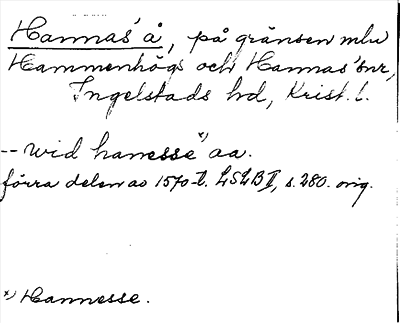 Hannas å, på gränsen mlw
Hammenhögs och Hannas snr,
Ingelstads hd, Krist. l.
-- wid hanesse x) aa.
förra delen av 1570-t. LSLB II, s. 280. orig.
x) Hannesse.